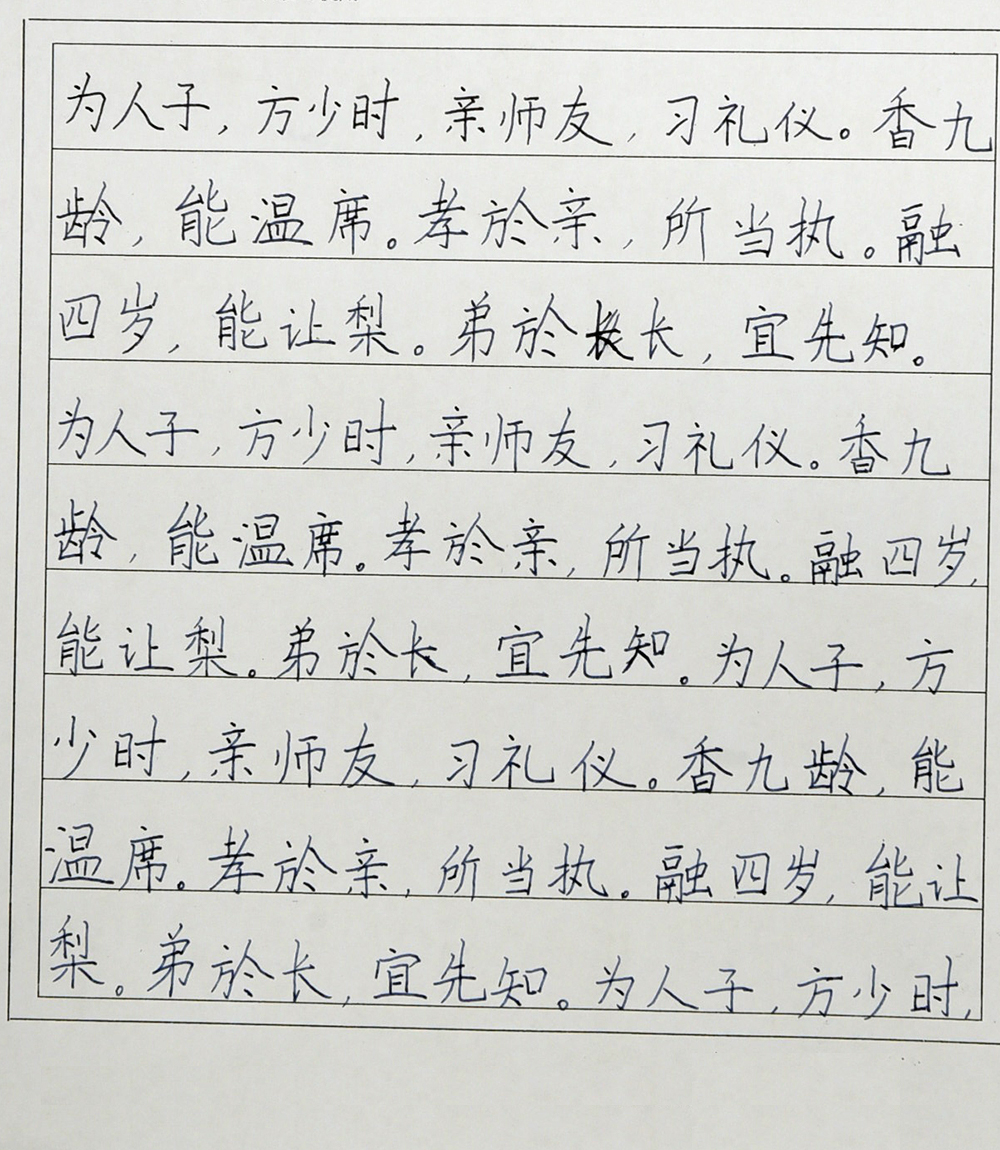 为人子，方少时，亲师友，习礼仪。香九
龄，能温席。孝於亲，所当执。融
四岁，能让梨。弟於长，宜先知。
为人子，方少时，亲师友，习礼仪。香九
龄，能温席。孝於亲，所当执。融四岁，
能让梨。弟於长，宜先知。为人子，方
少时，亲师友，习礼仪。香九龄，能
温席。孝於亲，所当执。融四岁，能让
梨。弟於长，宜先知。为人子，方少时，